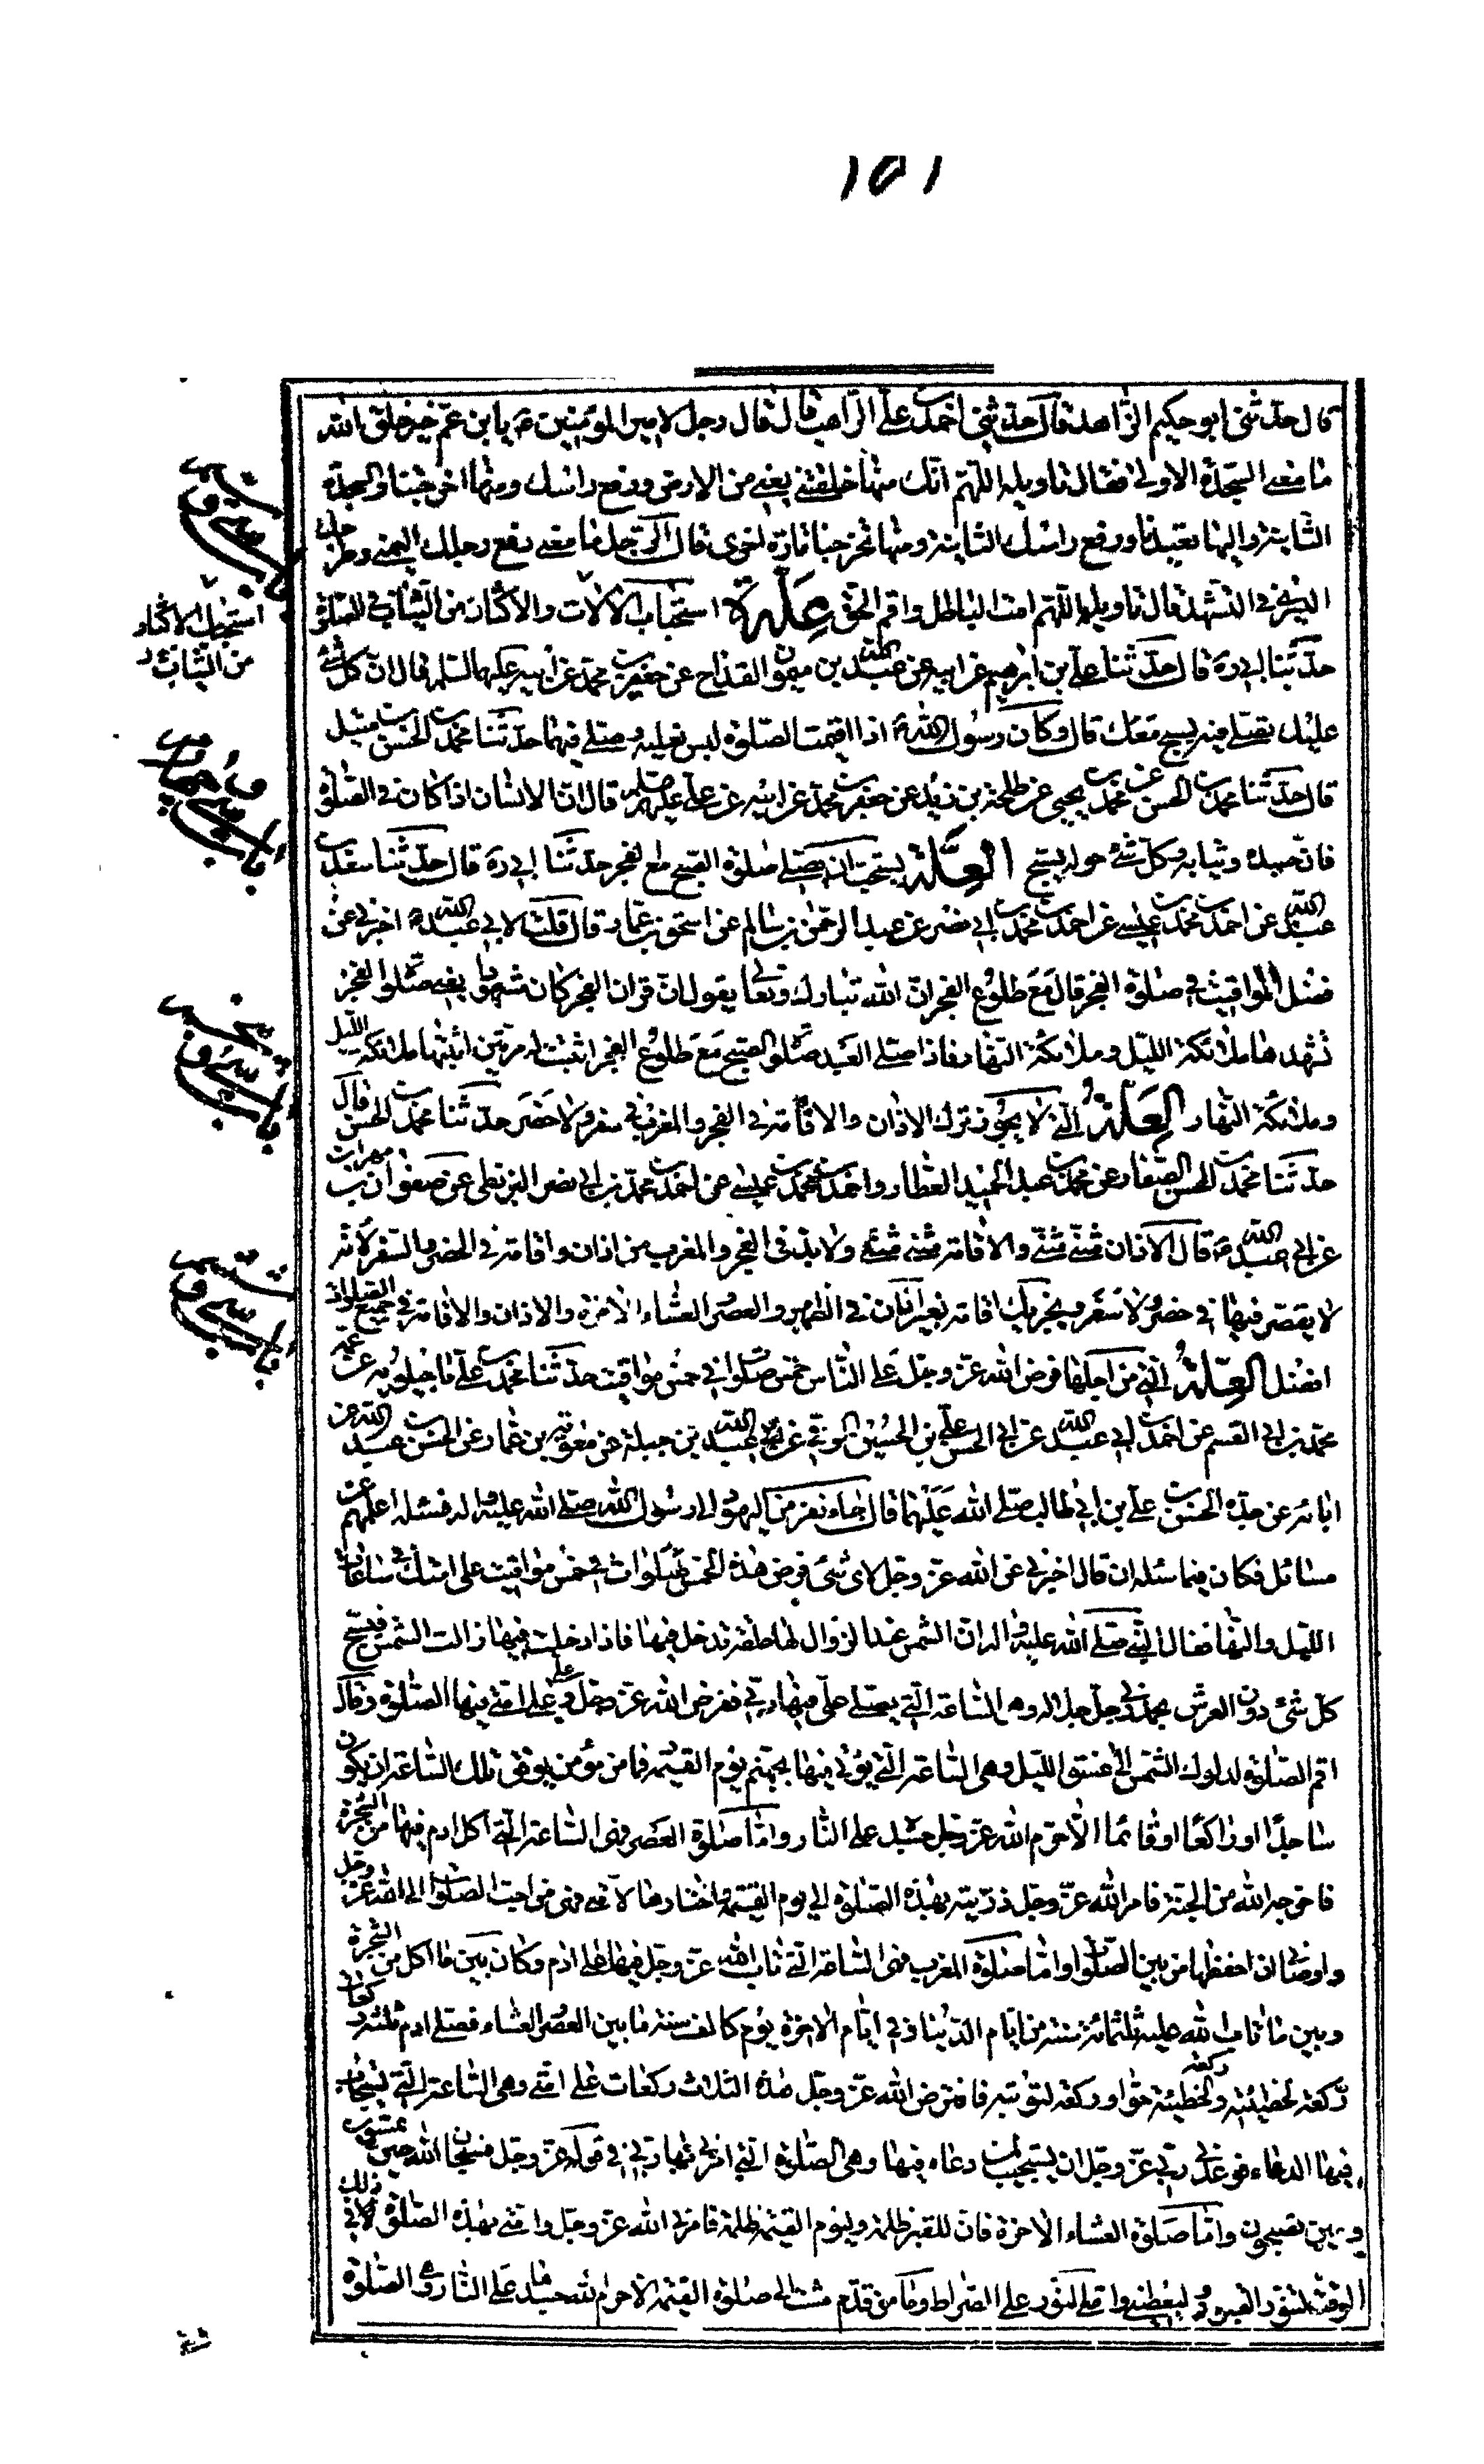 ١٥١
قال حدثنى ابو حكيم الزاهد قال حدثنى احمد بن على الراهب قال قال رجل لامير المؤمنين ع يا بن عم خير خلق الله
ما معنى السجدة الاولى فقال تاويله اللهم انك منها خلقتنى يعنى من الارض ورفع راسك ومنها اخرجتنا والسجدة
الثانية واليها تعيدنا ورفع راسك الثانية ومنها تخرجنا تارة اخرى قال الرجل ما معنى رفع رجلك اليمنى وطرحك
اليسرى فى التشهد قال تاويله اللهم امت الباطل واقم الحق علة استحباب الاكثار من الثياب فى الصلوة
حدثنا ابى ره قال حدثنا على بن ابرهيم عن ابيه عن عبد الله بن ميمون القداح عن جعفر بن محمد عن ابيه عليهما السلم قال ان كل شئ
عليك تصلى فيه يسبح معك قال وكان رسول الله ص اذا اقيمت الصلوة لبس نعليه وصلى فيهما حدثنا محمد بن الحسن متيل
قال حدثنا محمد بن الحسن عن محمد بن يحيى عن طلحة بن زيد عن جعفر بن محمد عن ابيه عن على عليهم السلم قال ان الانسان اذا كان فى الصلوة
فان جسده وثيابه وكل شئ حوله يسبح العلة يستحب ان يصلى صلوة الصبح مع الفجر حدثنا ابى ره قال حدثنا سعد بن
عبد الله عن احمد بن محمد بن عيسى عن احمد بن محمد بن ابى نصر عن عبد الرحمن بن سالم عن اسحق بن عمار قال قلت لابى عبد الله ع اخبرنى عن
فضل المواقيت فى صلوة الفجر قال مع طلوع الفجر ان الله تبارك وتعالى يقول ان قران الفجر كان مشهودا يعنى صلوة الفجر
تشهدها ملائكة الليل وملائكة النهار فاذا صلى العبد صلوة الصبح مع طلوع الفجر اثبتت له مرتين اثبتها ملائكة الليل
وملائكة النهار العلة التى لا يجوز ترك الاذان والاقامة فى الفجر والمغرب فى سفر ولا حضر حدثنا محمد بن الحسن قال
حدثنا محمد بن الحسن الصفار عن محمد بن عبد الحميد العطار واحمد بن محمد بن عيسى عن احمد بن محمد بن ابى نصر البزنطى عن صفوان بن مهران
عن ابى عبد الله ع قال الاذان مثنى مثنى والاقامة مثنى مثنى ولا بد فى الفجر والمغرب من اذان واقامة فى الحضر والسفر لانه
لا يقصر فيهما فى حضر ولا سفر ويجزيك اقامة بغير اذان فى الظهر والعصر والعشاء الاخرة والاذان والاقامة فى جميع الصلوات
افضل العلة التى من اجلها فرض الله عز وجل على الناس خمس صلوات فى خمس مواقيت حدثنا محمد بن على ماجيلويه عن عمه
محمد بن ابى القسم عن احمد بن ابى عبد الله عن ابى الحسن على بن الحسين البرقى عن عبد الله بن جبلة عن معوية بن عمار عن الحسن بن عبد الله عن
ابائه عن جده الحسن بن على بن ابى طالب صلى الله عليهما قال جاء نفر من اليهود الى رسول الله صلى الله عليه واله فسئله اعلمهم عن
مسائل فكان فيما سئله ان قال اخبرنى عن الله عز وجل لاى شئ فرض هذه الخمس صلوات فى خمس مواقيت على امتك فى ساعات
الليل والنهار فقال النبى صلى الله عليه واله ان الشمس عند الزوال لها حلقة تدخل فيها فاذا دخلت فيها زالت الشمس فيسبح
كل شئ دون العرش بحمد ربى جل جلاله وهى الساعة التى يصلى على فيها ربى ففرض الله عز وجل على وعلى امتى فيها الصلوة وقال
اقم الصلوة لدلوك الشمس الى غسق الليل وهى الساعة التى يؤتى فيها بجهنم يوم القيمة فما من مؤمن يوفق تلك الساعة ان يكون
ساجدا او راكعا او قائما الا حرم الله عز وجل جسده على النار واما صلوة العصر فهى الساعة التى اكل ادم فيها من الشجرة
فاخرجه الله من الجنة فامر الله عز وجل ذريته بهذه الصلوة الى يوم القيمة واختارها لامتى فهى من احب الصلوات الى الله عز وجل
واوصانى ان احفظها من بين الصلوات واما صلوة المغرب فهى الساعة التى تاب الله عز وجل فيها على ادم وكان بين ما اكل من الشجرة
وبين ما تاب الله عليه ثلثمائة سنة من ايام الدنيا وفى ايام الاخرة يوم كالف سنة ما بين العصر والعشاء فصلى ادم ثلث ركعات
ركعة لخطيئته وركعة لخطيئة حوا وركعة لتوبته فافترض الله عز وجل هذه الثلاث ركعات على امتى وهى الساعة التى يستجاب
فيها الدعاء فوعدنى ربى عز وجل ان يستجيب لمن دعاه فيها وهى الصلوة التى امرنى بها ربى فى قوله عز وجل فسبحان الله حين تمسون
وحين تصبحون واما صلوة العشاء الاخرة فان للقبر ظلمة وليوم القيمة ظلمة فامرنى الله عز وجل وامتى بهذه الصلوة فى ذلك
الوقت لتنور القبر وليعطينى وامتى النور على الصراط وما من قدم مشت الى صلوة العتمة الا حرم الله جسدها على النار وهى الصلوة
باب سى و
استحباب الاكثار
من الثياب
باب سى و چهارم
باب سى و پنجم
باب سى و ششم